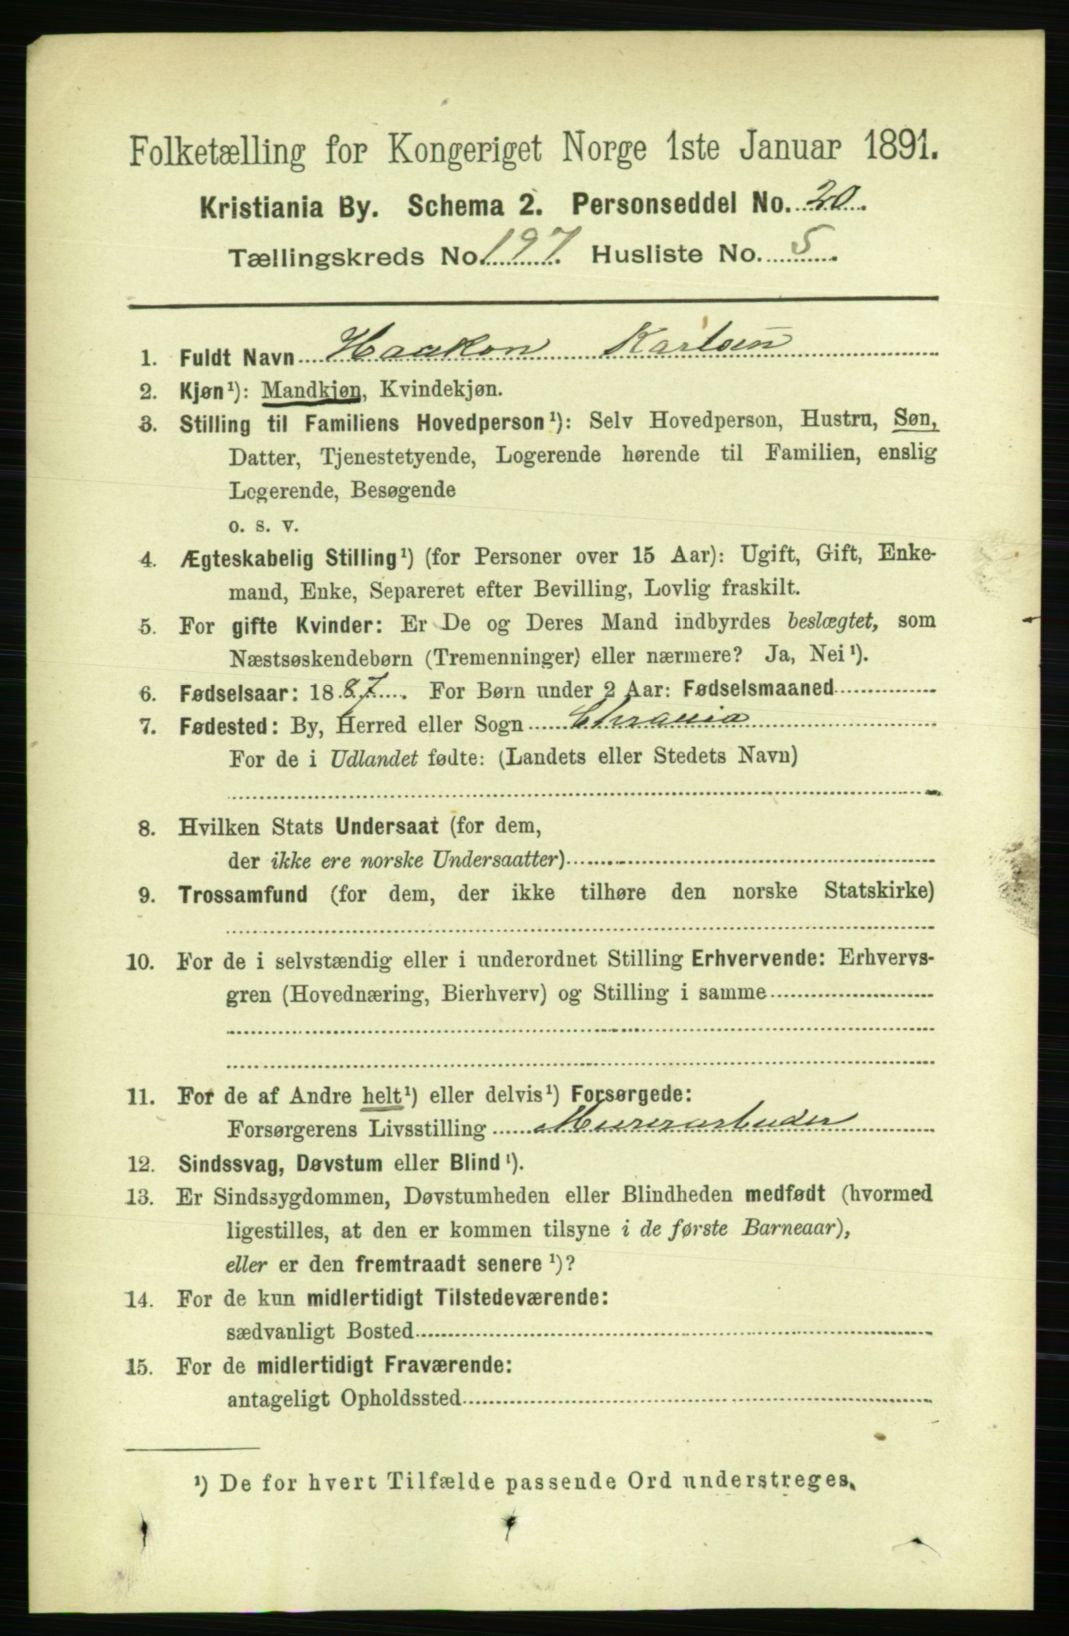 Folketælling for Kongeriget Norge 1ste Januar 1891.
Kristiania By. Schema 2. Personseddel No. 20.
Tællingskreds No. 197. Husliste No. 5.
1. Fuldt Navn Haakon Karlsen
2. Kjøn¹): Mandkjøn, Kvindekjøn.
3. Stilling til Familiens Hovedperson¹): Selv Hovedperson, Hustru, Søn,
Datter, Tjenestetyende, Logerende hørende til Familien, enslig
Logerende, Besøgende
o. s. v.
4. Ægteskabelig Stilling¹) (for Personer over 15 Aar): Ugift, Gift, Enke-
mand, Enke, Separeret efter Bevilling, Lovlig fraskilt.
5. For gifte Kvinder: Er De og Deres Mand indbyrdes beslægtet, som
Næstsøskendebørn (Tremenninger) eller nærmere? Ja, Nei¹).
6. Fødselsaar: 1887. For Børn under 2 Aar: Fødselsmaaned
7. Fødested: By, Herred eller Sogn Chrania
For de i Udlandet fødte: (Landets eller Stedets Navn)
8. Hvilken Stats Undersaat (for dem,
der ikke ere norske Undersaatter)
9. Trossamfund (for dem, der ikke tilhøre den norske Statskirke)
10. For de i selvstændig eller i underordnet Stilling Erhvervende: Erhvervs-
gren (Hovednæring, Bierhverv) og Stilling i samme
11. For de af Andre helt¹) eller delvis¹) Forsørgede:
Forsørgerens Livsstilling Murerarbeider
12. Sindssvag, Døvstum eller Blind¹).
13. Er Sindssygdommen, Døvstumheden eller Blindheden medfødt (hvormed
ligestilles, at den er kommen tilsyne i de første Barneaar),
eller er den fremtraadt senere¹)?
14. For de kun midlertidigt Tilstedeværende:
sædvanligt Bosted
15. For de midlertidigt Fraværende:
antageligt Opholdssted
¹) De for hvert Tilfælde passende Ord understreges.